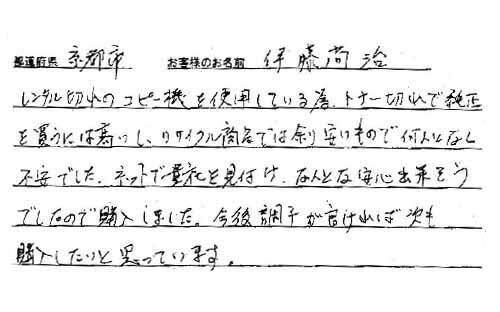 都道府県 京都市 お客様のお名前 伊藤尚治
レンタル切れのコピー機を使用している為、トナー切れで純正
を買うには高いし、リサイクル商品では余り安いもので何んとなし
不安でした。ネットで貴社を見付け、なんとな安心出来そう
でしたので購入しました。今後調子が良ければ次も
購入したいと思っています。